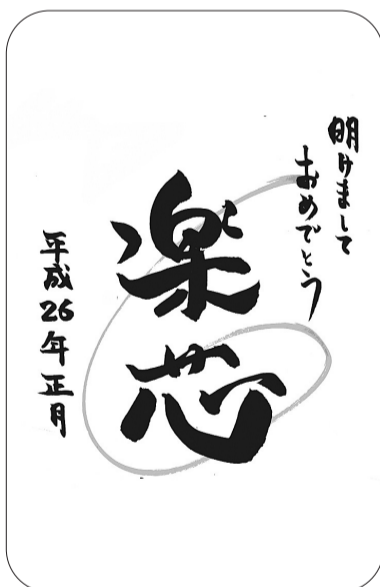 明けまして
おめでとう
楽芯
平成26年正月